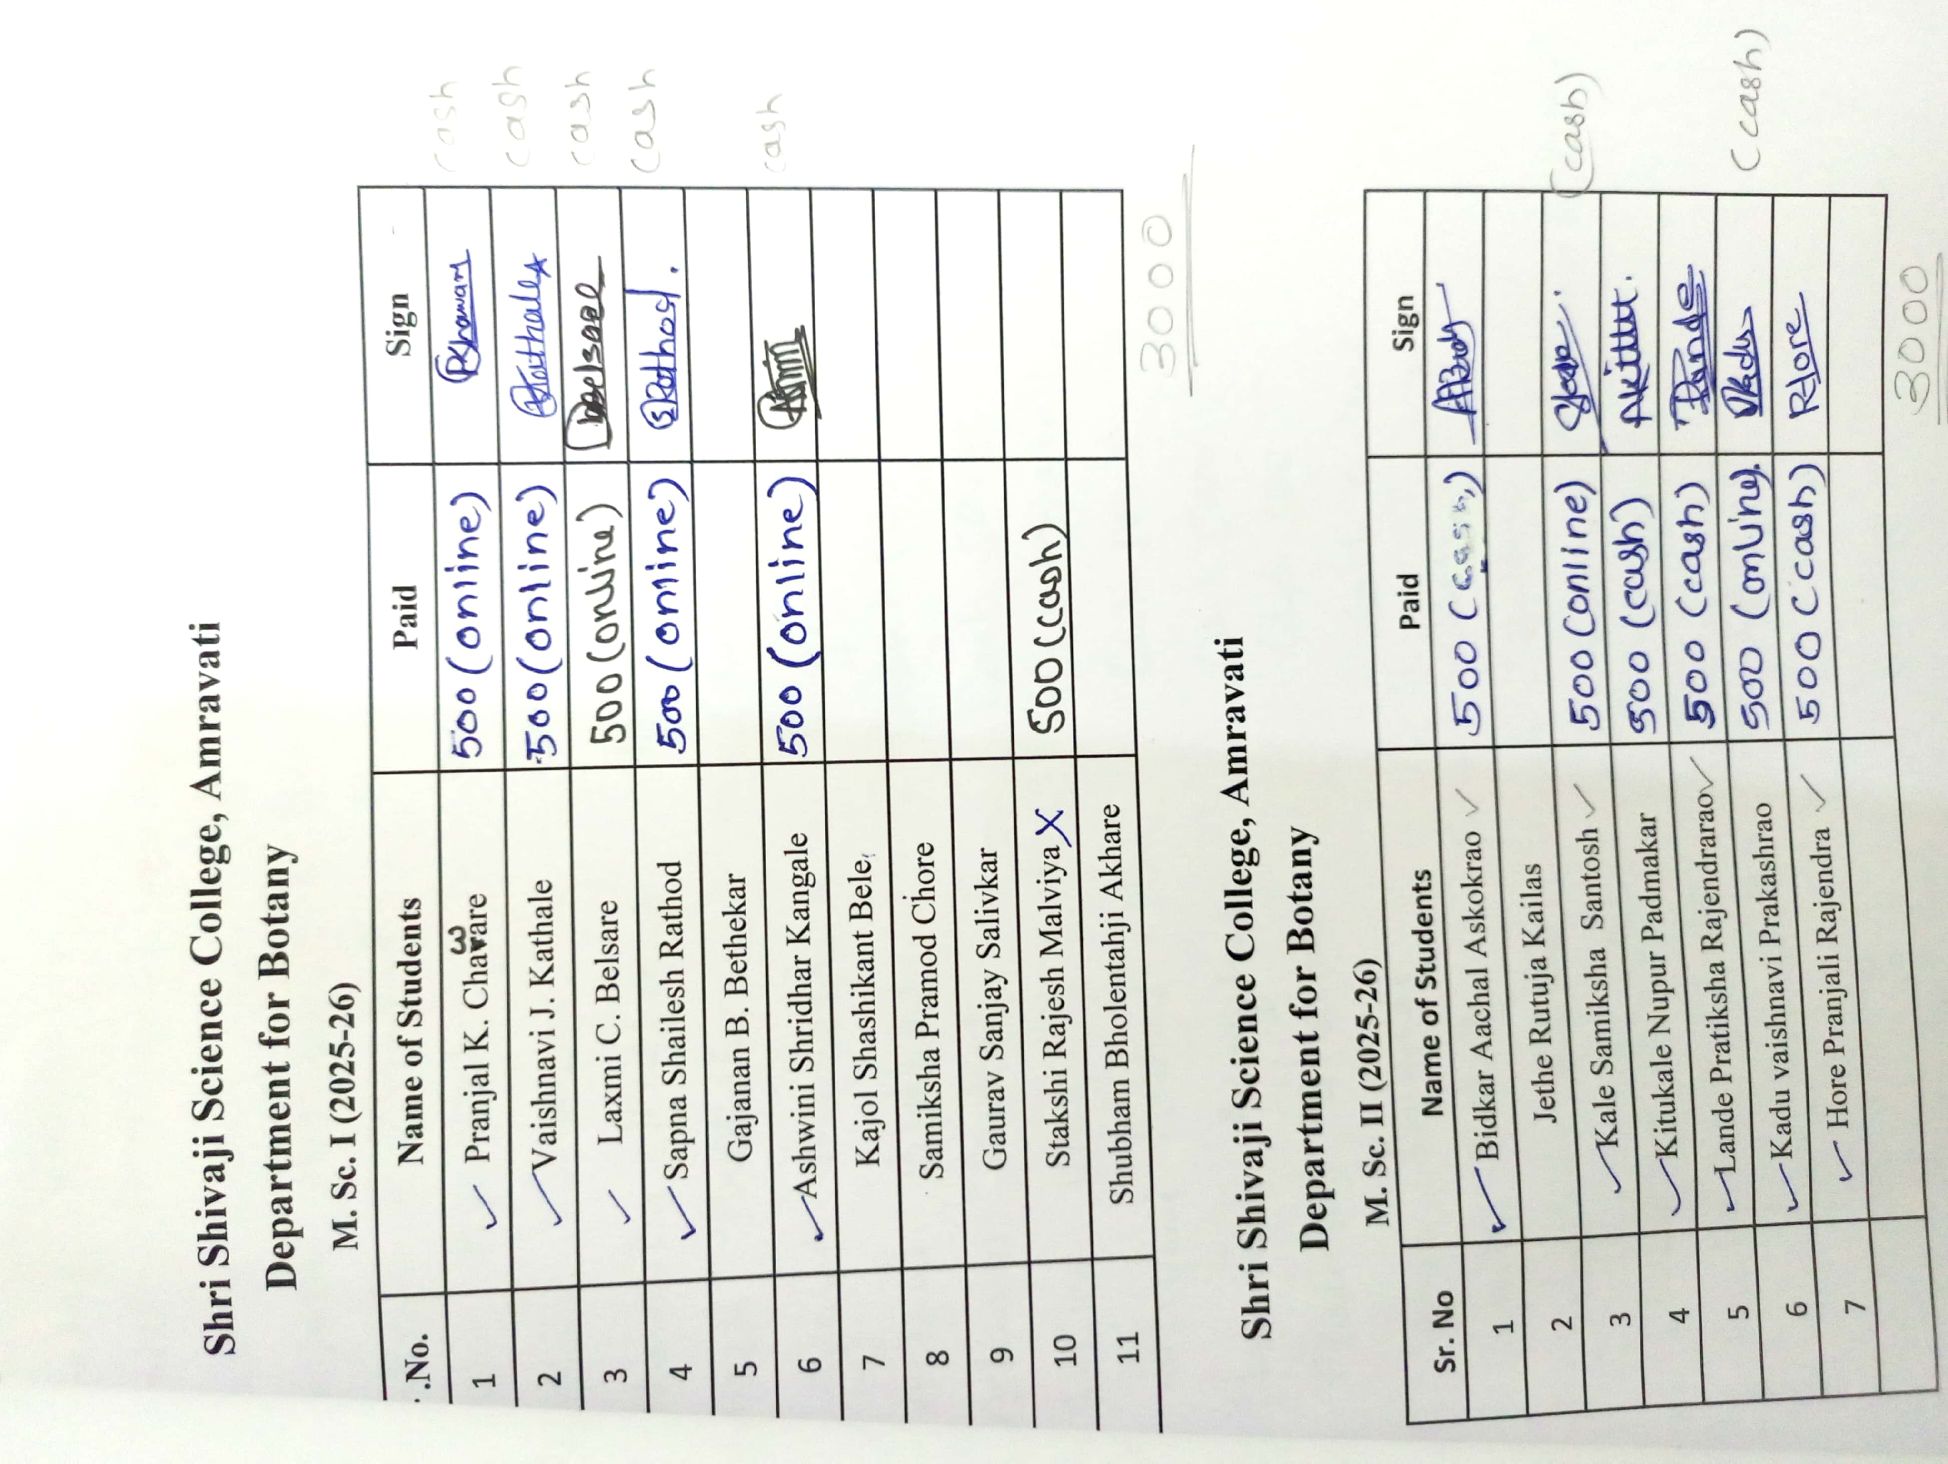 Shri Shivaji Science College, Amravati
Department for Botany
M. Sc. I (2025-26)
.No. Name of Students Paid Sign
1 Pranjal K. Chavare w 500 (online) cash
2 Vaishnavi J. Kathale 500 (online) Kathale cash
3 Laxmi C. Belsare 500 (online) cash
4 Sapna Shailesh Rathod 500 (online) SRathod. cash
5 Gajanan B. Bethekar
6 Ashwini Shridhar Kangale 500 (online) cash
7 Kajol Shashikant Bele
8 Samiksha Pramod Chore
9 Gaurav Sanjay Salivkar
10 Stakshi Rajesh Malviya X 500 (cash)
11 Shubham Bholentahji Akhare
3000
Shri Shivaji Science College, Amravati
Department for Botany
M. Sc. II (2025-26)
Sr. No Name of Students Paid Sign
1 Bidkar Aachal Askokrao 500 (cash)
2 Jethe Rutuja Kailas
3 Kale Samiksha Santosh 500 (online) (cash)
4 Kitukale Nupur Padmakar 500 (cash)
5 Lande Pratiksha Rajendrarao 500 (cash)
6 Kadu vaishnavi Prakashrao 500 (online) (cash)
7 Hore Pranjali Rajendra 500 (cash) RHore
3000